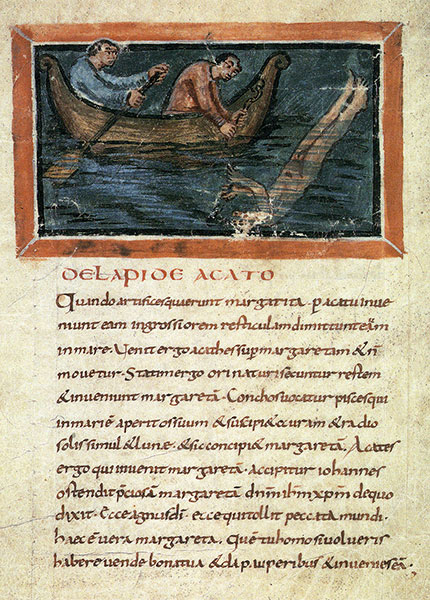 DE LAPIDE ACATO
Quando artifices querunt margarita· p acatu inve
niunt eam ingrossiorem resticulam dimittunt eam
in mare· Venit ergo acathes sup margaretam & ñ
movetur· Statim ergo orinaturi secuntur restem
& inveniunt margaretã· Conchos vocatur piscesqui
in mari ẽ aperit os suum & suscipi& curam & radio
solis simul & lunae· & sic concipi& margaretã. Acates
ergo qui invenit margaretã· accipitur iohannes
ostendit p̃ciosã margaretã dñm ihm xpm de quo
dixit· Ecce agnus di· ecce qui tollit peccata mundi·
haec ẽ vera margareta· Quẽ tu homo si volueris
habere vende bona tua & da pauperibus & invenies eã·